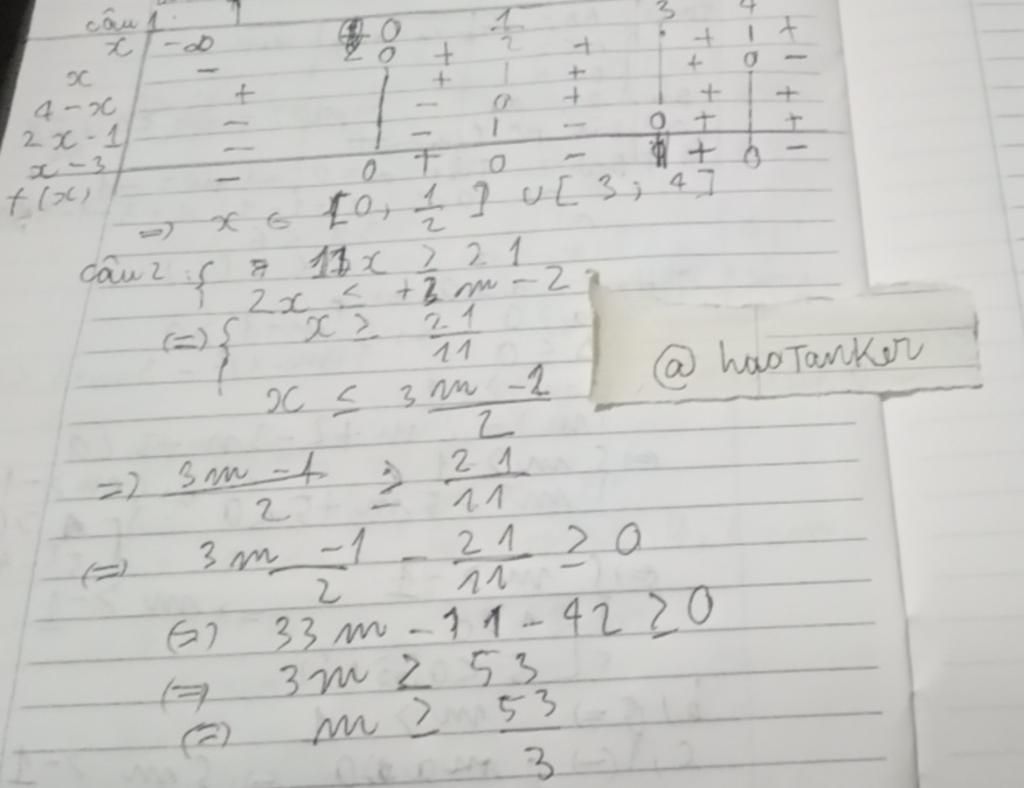 câu 1:
x -∞ 0 1/2 3 4
x - 0 + | + | + | +
4-x + | + | + | + 0 -
2x-1 - | - 0 + | + | +
x-3 - | - | - 0 + | +
f(x) - 0 + 0 - || + 0 -
=> x ∈ [0, 1/2] ∪ [3; 4]
câu 2: { 11x ≥ 21
2x ≤ +3m-2
(=) { x ≥ 21/11
x ≤ (3m-1)/2
=> (3m-1)/2 ≥ 21/11
(=) (3m-1)/2 - 21/11 ≥ 0
(=) 33m-11-42 ≥ 0
(=) 3m ≥ 53
(=) m ≥ 53/3
@ haoTanker